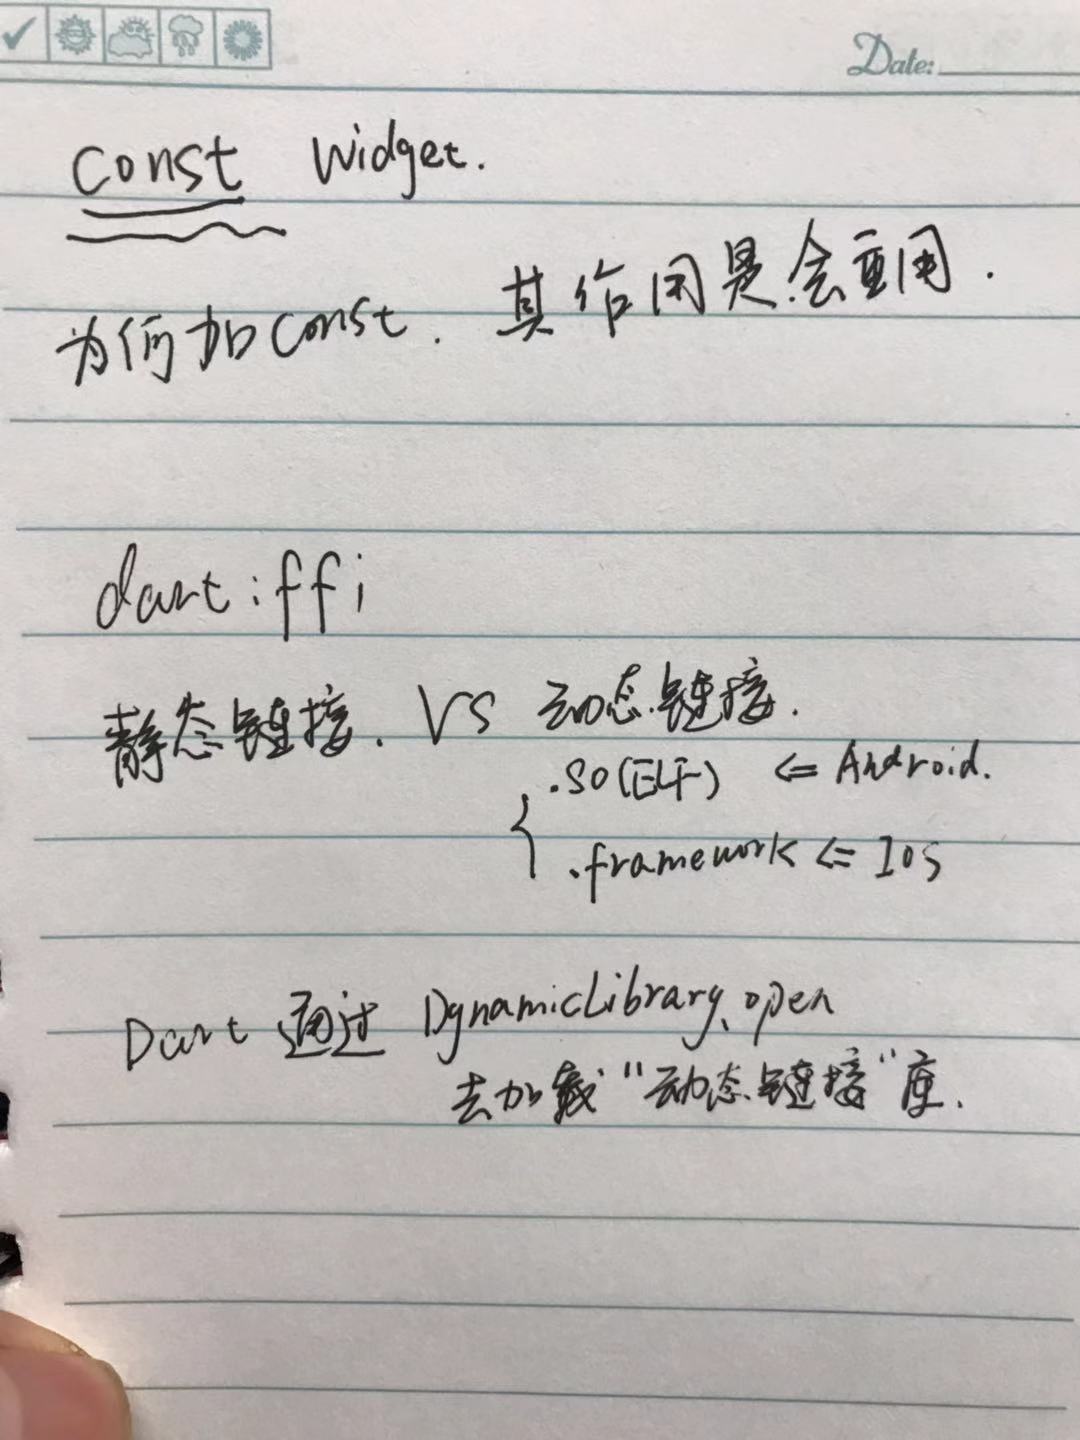 Date:
const Widget.
为何加const. 其作用是会重用.
dart:ffi
静态链接. VS 动态链接.
.so(ELF) <= Android.
.framework <= Ios
Dart 通过 DynamicLibrary.open
去加载“动态链接”库.